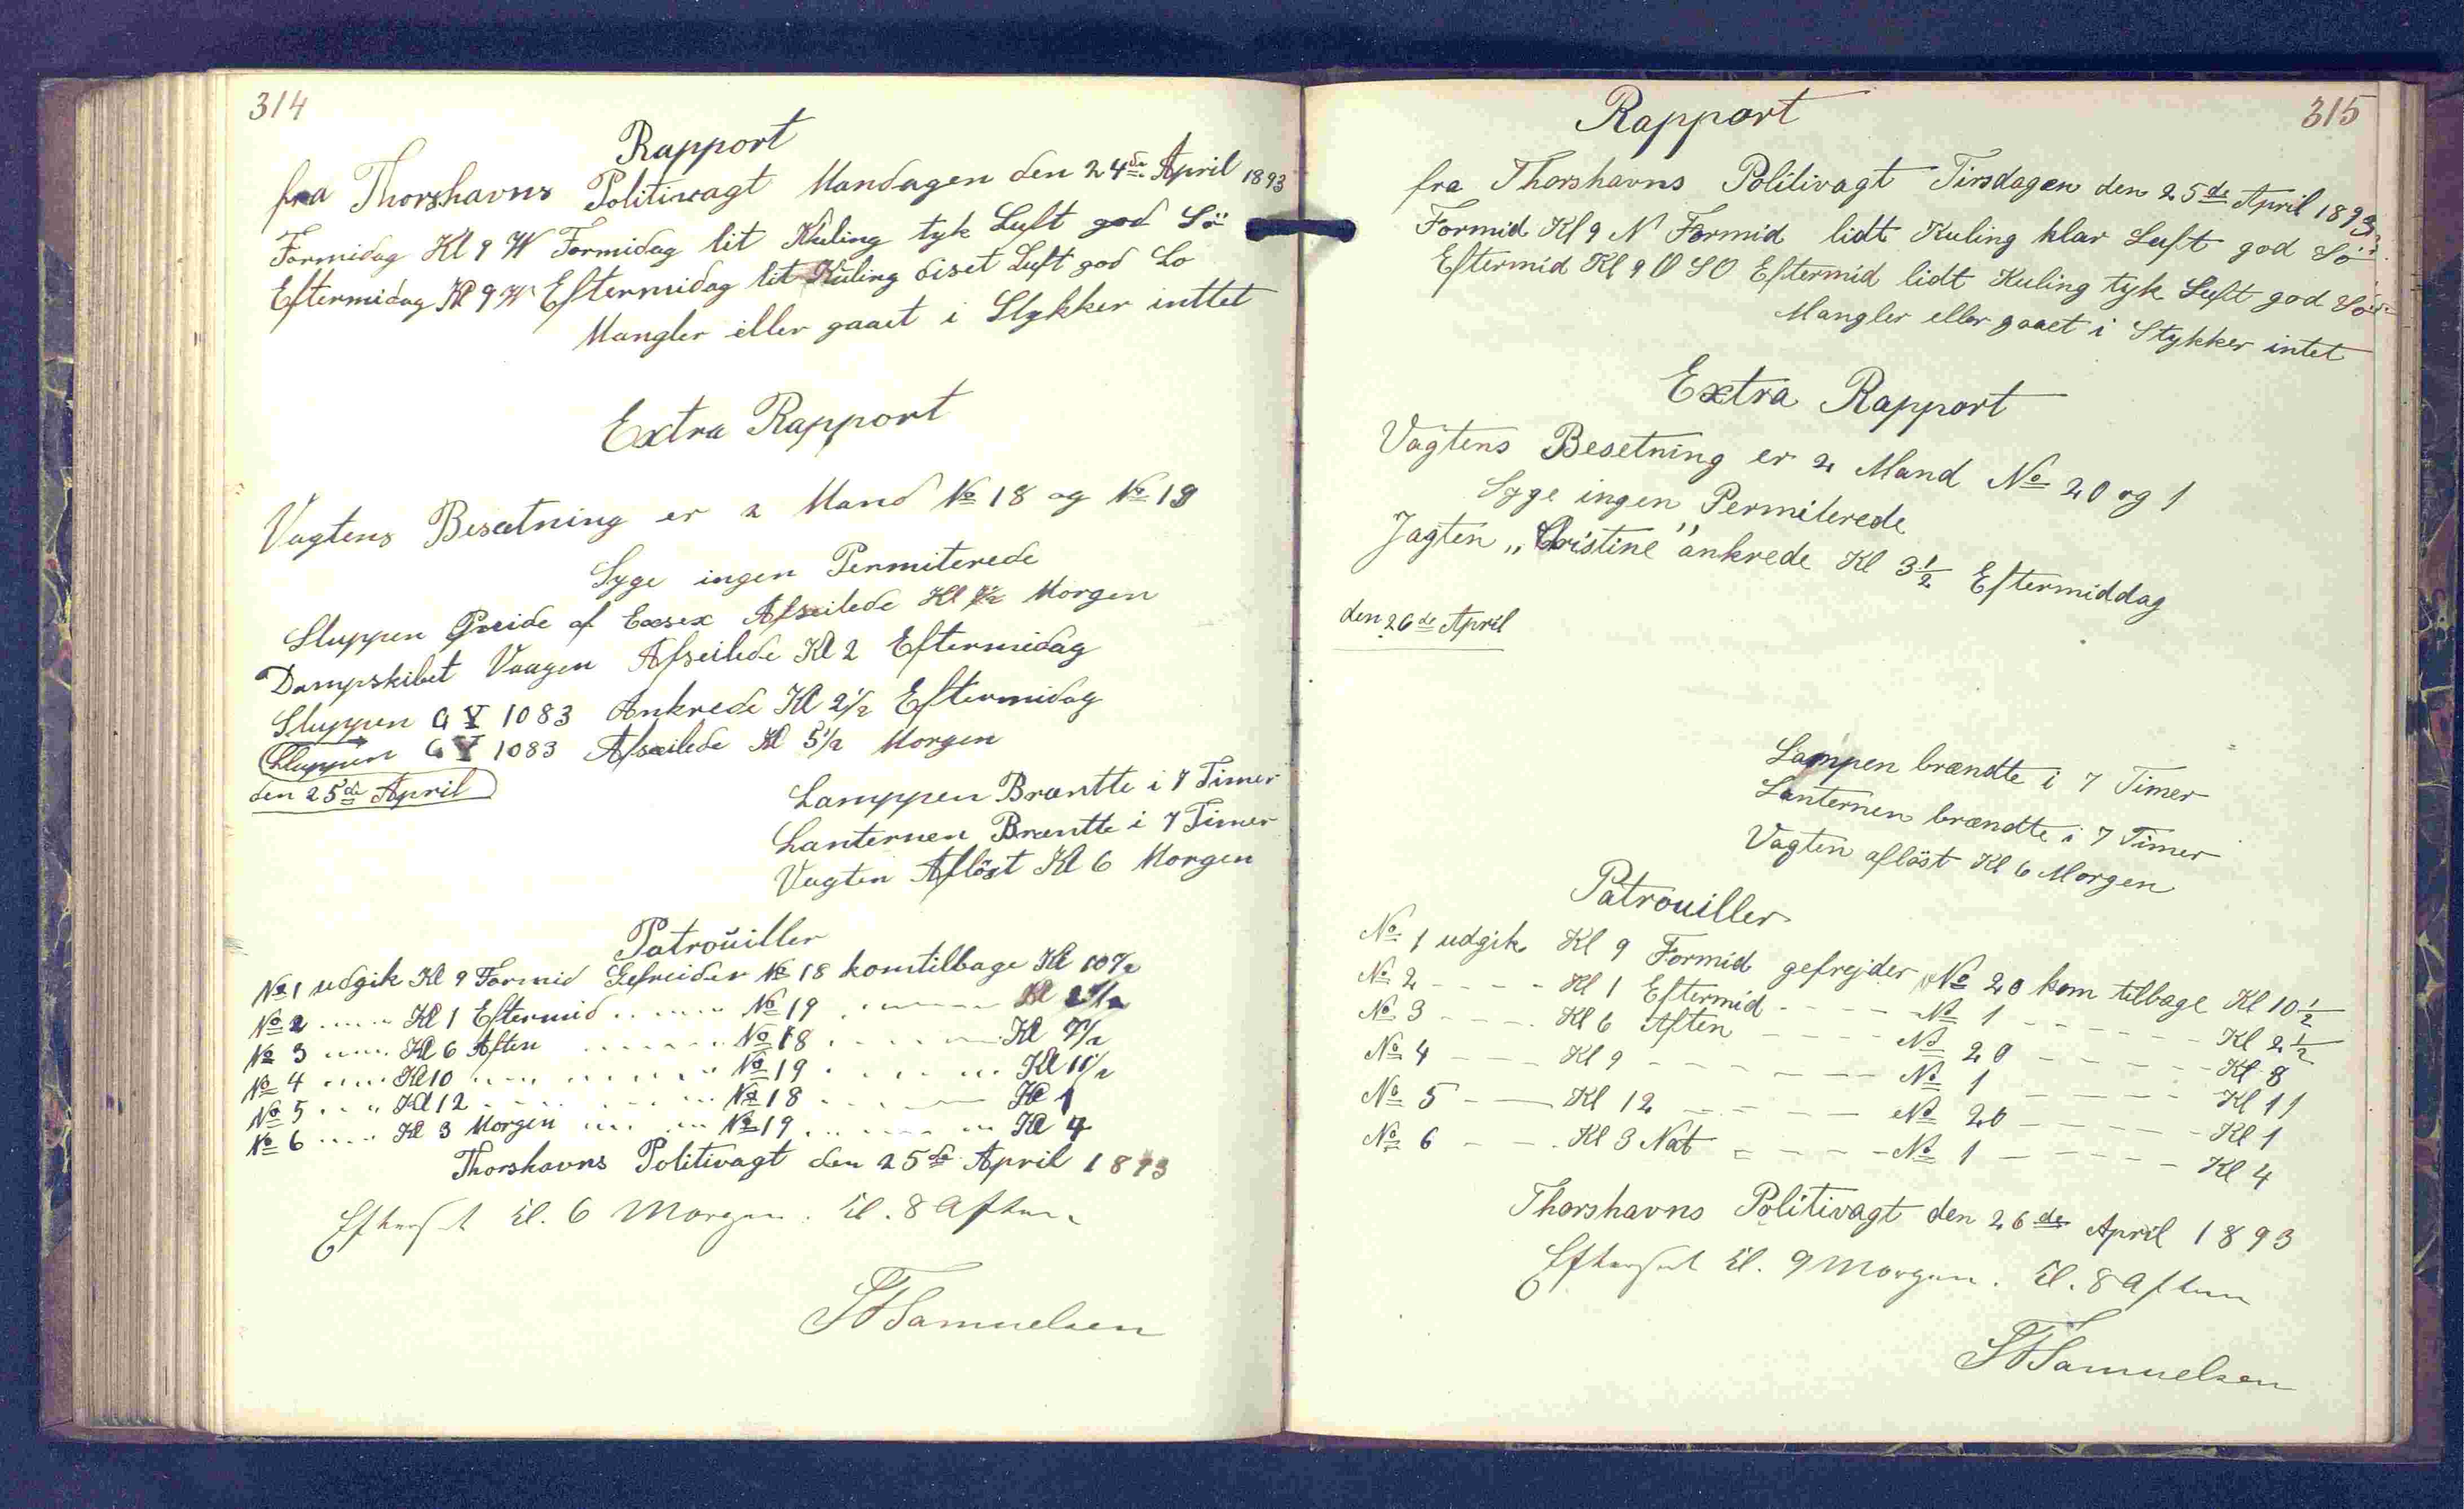 314
Rapport
fra Thorshavns Politivagt Mandagen den 24de April 1893
Formidag Kl 9 W Formidag lit Kuling tyk Luft god Sö
Eftermidag Kl 9 W Eftermidag lit Kuling diset Luft god So
Mangler eller gaaet i Stykker inttet
Extra Rapport
Vagtens Besætning er 2 Mand No 18 og No 19
Syge ingen Permiterede
Sluppen Preide of Essex Afseilede Kl Morgen
Dampskibet Vaagen Afseilede Kl 2 Eftermidag
Sluppen G Y 1083 Ankrede Kl 2 1/2 Eftermidag
Sluppen G Y 1083 Afseilede Kl 5 1/2 Morgen
den 25de April
Lamppen Bræntte i 7 Timer
Lanternen Bræntte i 7 Timer
Vagten Aflöst Kl 6 Morgen
Patrouiller
No 1 udgik Kl 9 Formid Gefreider No 18 komtilbage Kl 10 1/2
No 2 .... Kl 1 Eftermid ..... No 19 ..... Kl 2 1/2
No 3 .... Kl 6 Aften ..... No 18 ..... Kl 7 1/2
No 4 .... Kl 10 ..... No 19 ..... Kl 11 1/2
No 5 .... Kl 12 ..... No 18 ..... Kl 1
No 6 .... Kl 3 Morgen ..... No 19 ..... Kl 4
Thorshavns Politivagt den 25de April 1893
Efterset kl. 6 Morgen. kl. 8 Aften
Samuelsen
315
Rapport
fra Thorshavns Politivagt Tirsdagen den 25de April 1893
Formid Kl 9 N Formid lidt Kuling klar Luft god Sö
Eftermid Kl 9 O SO Eftermid lidt Kuling tyk Luft god Sö
Mangler eller gaaet i Stykker intet
Extra Rapport
Vagtens Besetning er 2 Mand No 20 og 1
Syge ingen Permiterede
Jagten „Christine" ankrede Kl 3 1/2 Eftermiddag
den 26de April
Lampen brændte i 7 Timer
Lanternen brændte i 7 Timer
Vagten aflöst Kl 6 Morgen
Patrouiller
No 1 udgik Kl 9 Formid gefrejder No 20 kom tilbage Kl 10 1/2
No 2 - - - - Kl 1 Eftermid - - - - No 1 - - - - Kl 2 1/2
No 3 - - - - Kl 6 Aften - - - - No 20 - - - - Kl 8
No 4 - - - Kl 9 - - - - No 1 - - - - Kl 11
No 5 - - Kl 12 - - - - No 20 - - - - Kl 1
No 6 - - - Kl 3 Nat - - - - No 1 - - - - Kl 4
Thorshavns Politivagt den 26de April 1893
Efterset kl. 9 Morgen. kl. 8 Aften
Samuelsen